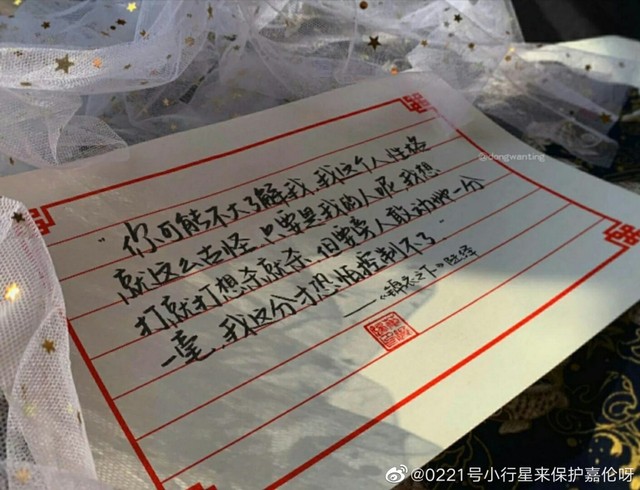 @dongwanting
“你可能不大了解我,我这个人性格
就这么古怪,只要是我的人呢,我想
打就打想杀就杀,但要旁人敢动她一分
一毫,我这分寸恐怕控制不了.”
——《锦衣之下》陆绎
@0221号小行星来保护嘉伦呀